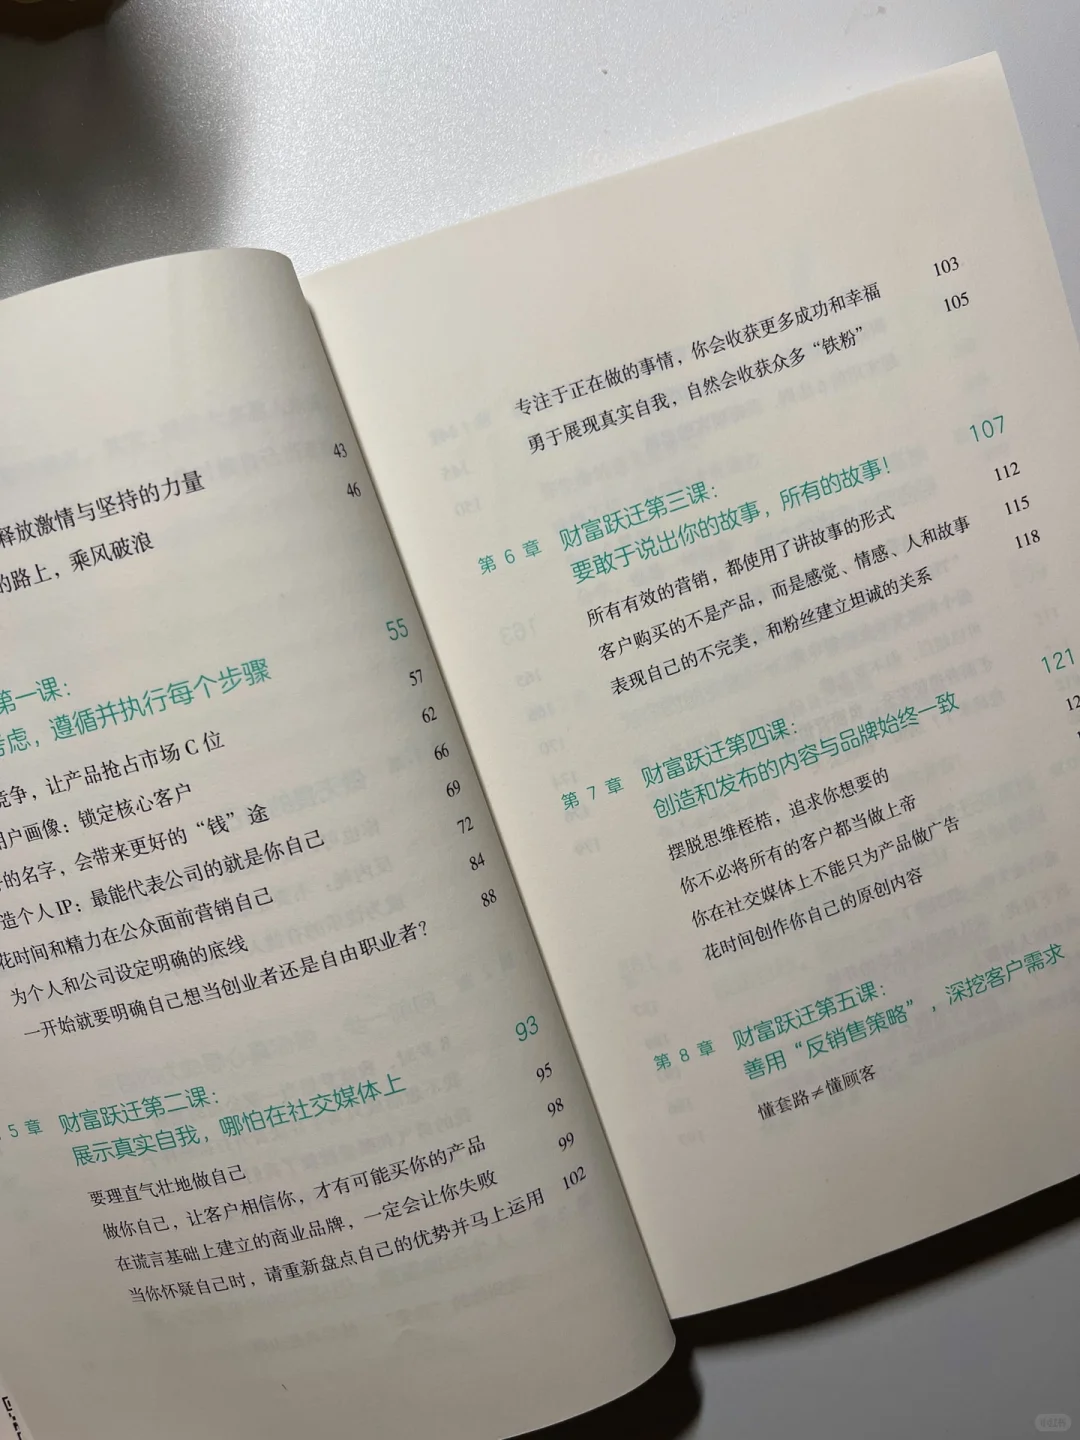 释放激情与坚持的力量 43
的路上，乘风破浪 46
第一课： 55
考虑，遵循并执行每个步骤
竞争，让产品抢占市场 C 位 57
用户画像：锁定核心客户 62
的名字，会带来更好的“钱”途 66
造个人 IP：最能代表公司的就是你自己 69
花时间和精力在公众面前营销自己 72
为个人和公司设定明确的底线 84
一开始就要明确自己想当创业者还是自由职业者？ 88
5 章 财富跃迁第二课： 93
展示真实自我，哪怕在社交媒体上
要理直气壮地做自己 95
做你自己，让客户相信你，才有可能买你的产品 98
在谎言基础上建立的商业品牌，一定会让你失败 99
当你怀疑自己时，请重新盘点自己的优势并马上运用 102
专注于正在做的事情，你会收获更多成功和幸福 103
勇于展现真实自我，自然会收获众多“铁粉” 105
第 6 章 财富跃迁第三课： 107
要敢于说出你的故事，所有的故事！
所有有效的营销，都使用了讲故事的形式 112
客户购买的不是产品，而是感觉、情感、人和故事 115
表现自己的不完美，和粉丝建立坦诚的关系 118
第 7 章 财富跃迁第四课： 121
创造和发布的内容与品牌始终一致
摆脱思维桎梏，追求你想要的
你不必将所有的客户都当做上帝
你在社交媒体上不能只为产品做广告
花时间创作你自己的原创内容
第 8 章 财富跃迁第五课：
善用“反销售策略”，深挖客户需求
懂套路≠懂顾客